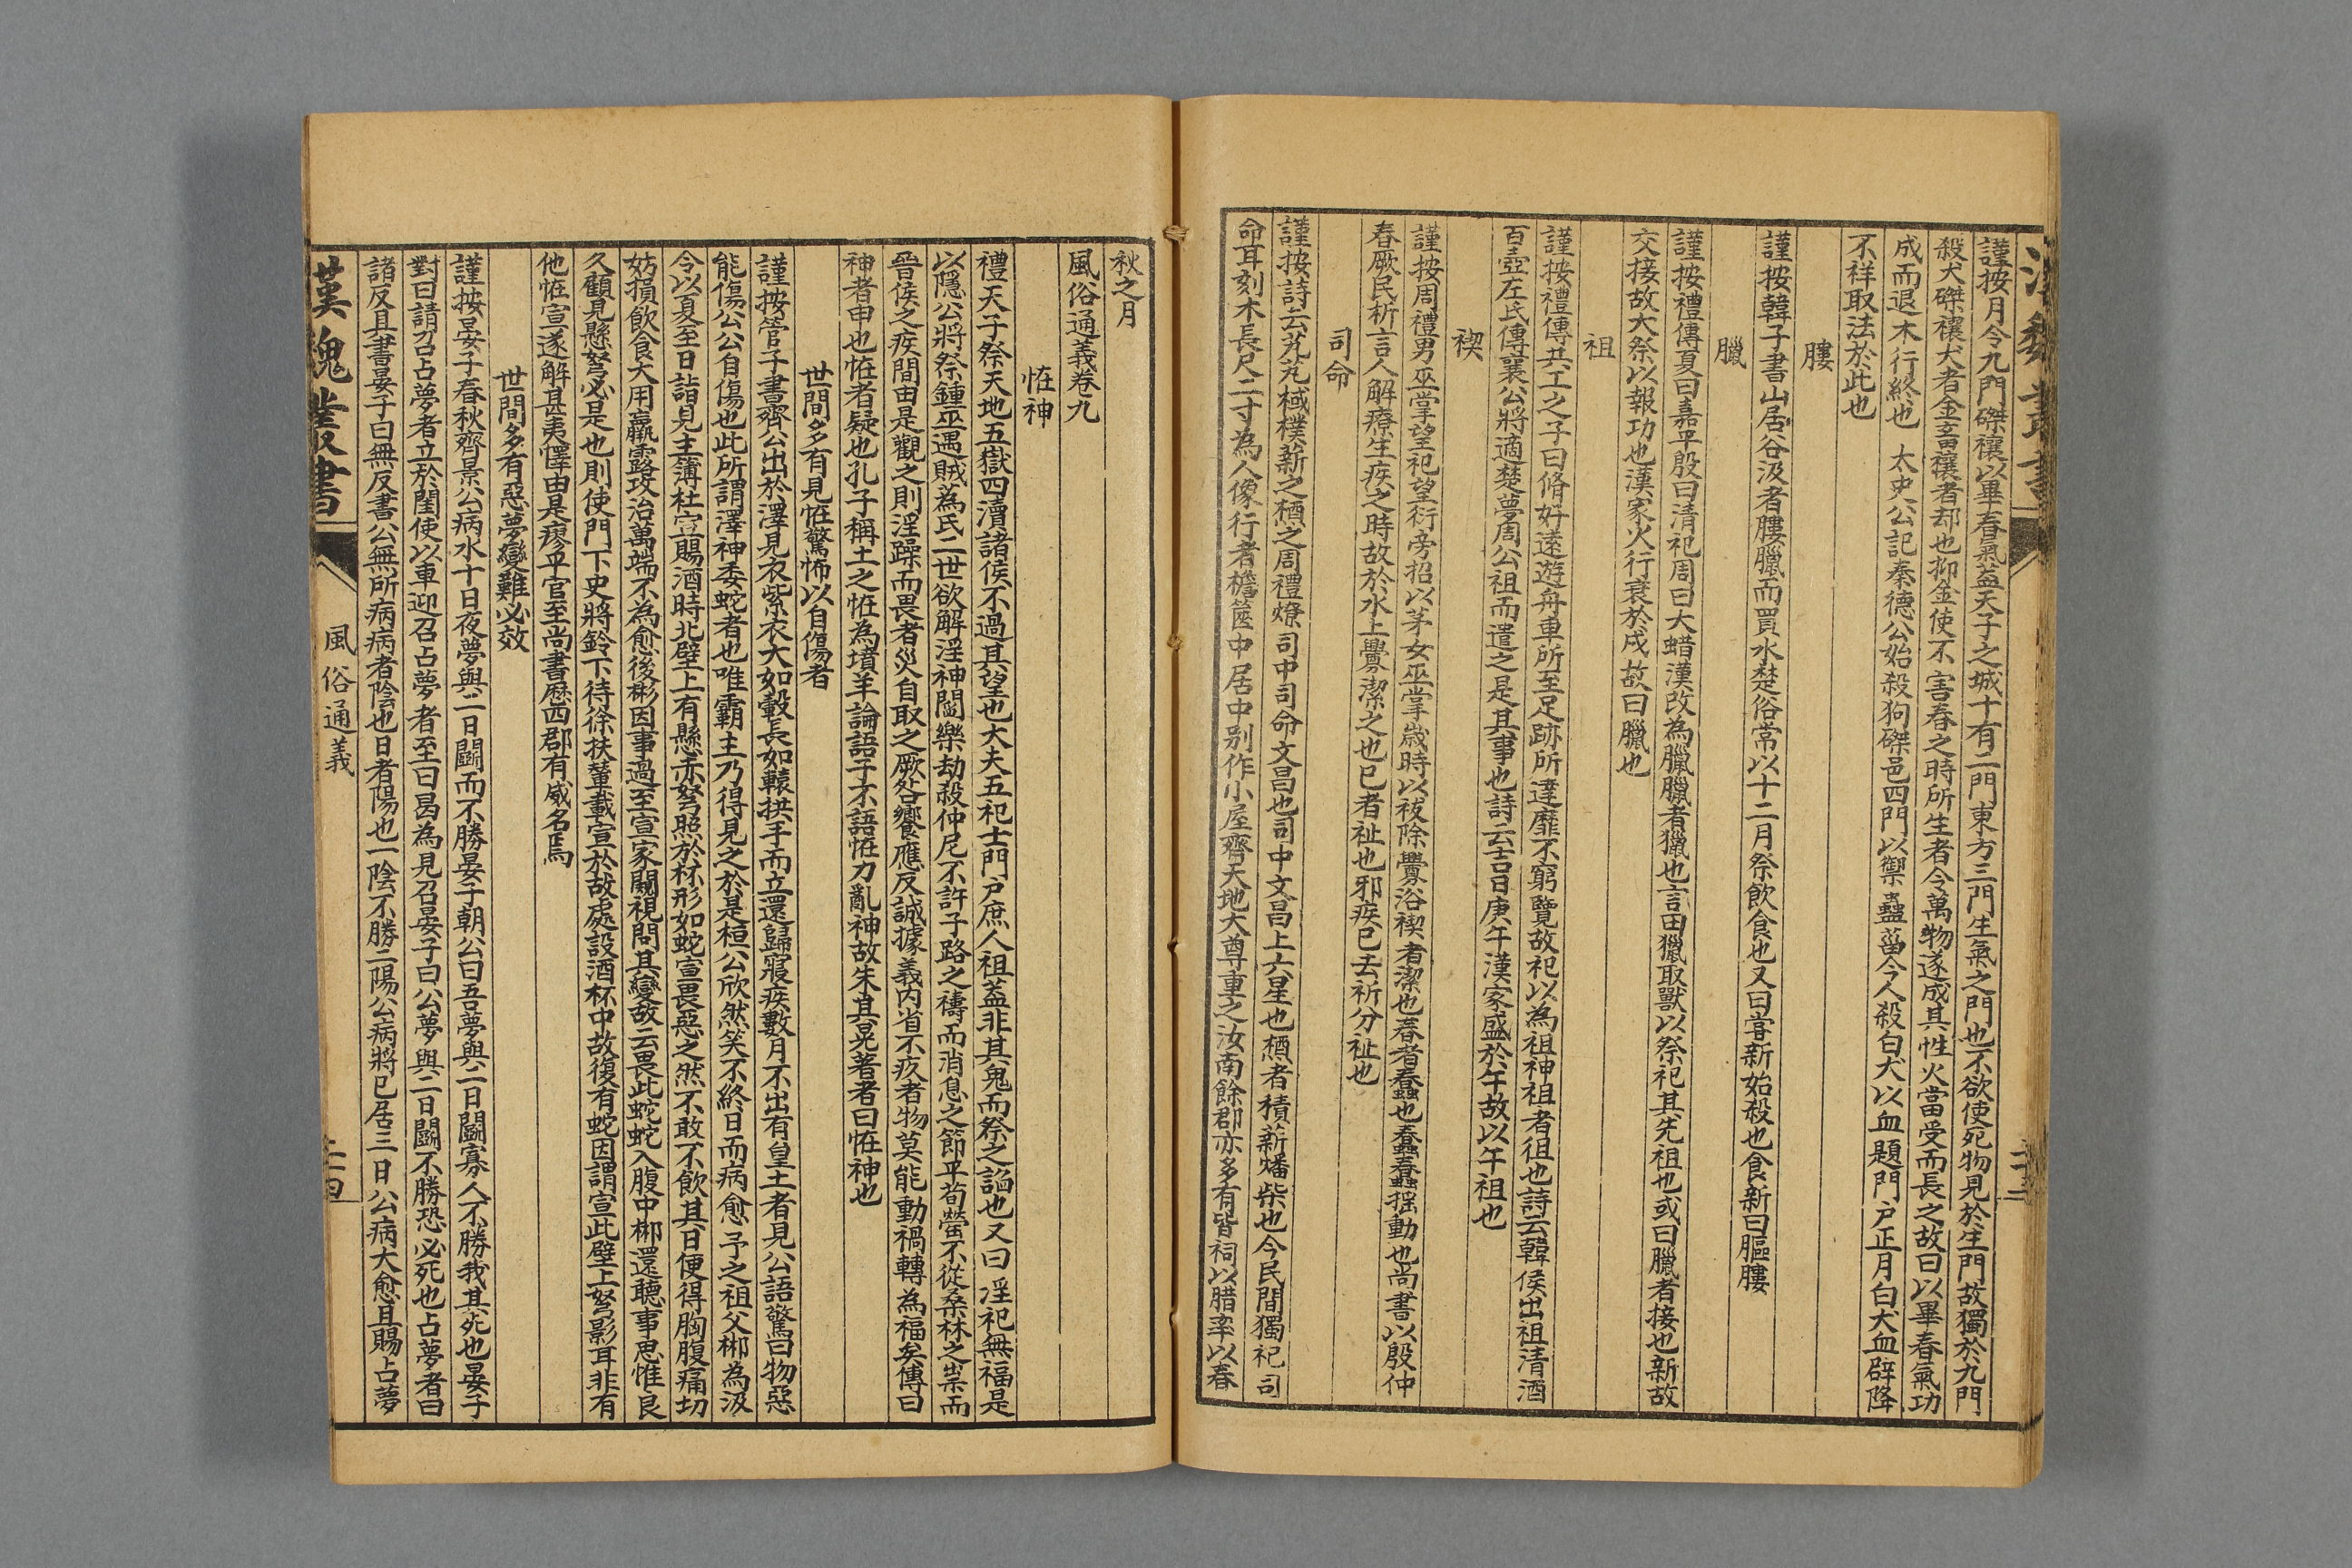 謹按月令九門磔禳以畢春氣蓋天子之城十有二門東方三門生氣之門也不欲使死物見於生門故獨於九門
殺犬磔禳犬者金畜禳者却也抑金使不害春之時所生者令萬物遂成其性火當受而長之故曰以畢春氣功
成而退木行終也太史公記秦德公始殺狗磔邑四門以禦蠱菑今人殺白犬以血題門戶正月白犬血辟除
不祥取法於此也
膢
謹按韓子書山居谷汲者膢臘而買水楚俗常以十二月祭飲食也又曰嘗新始殺也食新曰貙膢
臘
謹按禮傳夏曰嘉平殷曰清祀周曰大蜡漢改為臘臘者獵也言田獵取獸以祭祀其先祖也或曰臘者接也新故
交接故大祭以報功也漢家火行衰於戌故曰臘也
祖
謹按禮傳共工之子曰脩好遠遊舟車所至足跡所達靡不窮覽故祀以為祖神祖者徂也詩云韓侯出祖清酒
百壺左氏傳襄公將適楚夢周公祖而遣之是其事也詩云吉日庚午漢家盛於午故以午祖也
禊
謹按周禮男巫掌望祀望衍旁招以茅女巫掌歲時以祓除釁浴禊者潔也春者蠢也蠢蠢搖動也尚書以殷仲
春厥民析言人解療生疾之時故於水上釁潔之也巳者祉也邪疾已去祈介祉也
司命
謹按詩云芃芃棫樸薪之槱之周禮燎司中司命文昌也司中文昌上六星也槱者積薪燔柴也今民間獨祀司
命耳刻木長尺二寸為人像行者檐篋中居中別作小屋齊天地大尊重之汝南餘郡亦多有皆祠以腊率以春
秋之月
風俗通義卷九
恠神
禮天子祭天地五嶽四瀆諸侯不過其望也大夫五祀士門戶庶人祖蓋非其鬼而祭之諂也又曰淫祀無福是
以隱公將祭鍾巫遇賊蒍氏二世欲解淫神閻樂劫殺仲尼不許子路之禱而消息之節平荀罃不從桑林之祟而
晉侯之疾間由是觀之則淫躁而畏者災自取之厥咎嚮應反誠據義內省不疚者物莫能動禍轉為福矣傳曰
神者申也恠者疑也孔子稱土之恠為墳羊論語子不語恠力亂神故采其晃著者曰恠神也
世間多有見恠驚怖以自傷者
謹按管子書齊公出於澤見衣紫衣大如轂長如轅拱手而立還歸寢疾數月不出有皇士者見公語驚曰物惡
能傷公公自傷也此所謂澤神委蛇者也唯霸主乃得見之於是桓公欣然笑不終日而病愈予之祖父郴為汲
令以夏至日詣見主簿杜宣賜酒時北壁上有懸赤弩照於杯形如蛇宣畏惡之然不敢不飲其日便得胸腹痛切
妨損飲食大用羸露攻治萬端不為愈後郴因事過至宣家闚視問其變故云畏此蛇蛇入腹中郴還聽事思惟良
久顧見懸弩必是也則使門下史將鈴下待徐扶輦載宣於故處設酒杯中故復有蛇因謂宣此壁上弩影耳非有
他恠宣遂解甚夷懌由是瘳平官至尚書歷四郡有威名焉
世間多有惡夢變難必效
謹按晏子春秋齊景公病水十日夜夢與二日鬭而不勝晏子朝公曰吾夢與二日鬭寡人不勝我其死也晏子
對曰請召占夢者立於閨使以車迎召占夢者至曰曷為見召晏子曰公夢與二日鬭不勝恐必死也占夢者曰
諸反具書晏子曰無反書公無所病病者陰也日者陽也一陰不勝二陽公病將已居三日公病大愈且賜占夢
漢魏叢書
風俗通義